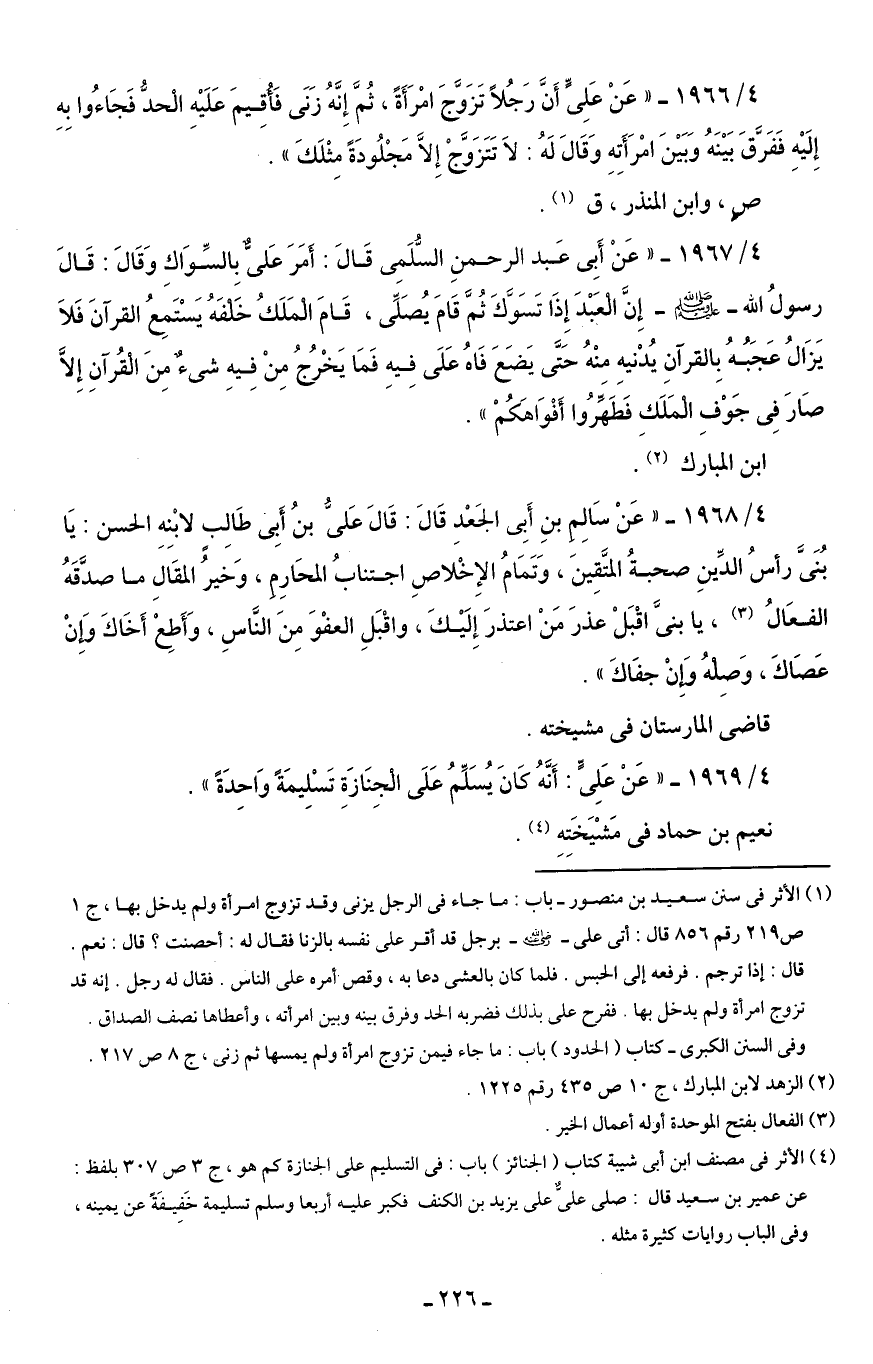 ٤/ ١٩٦٦ ـ « عَنْ عَلِىٍّ أَنَّ رَجُلاً تَزَوَّجَ امْرَأَةً ، ثُمَّ إِنَّهُ زَنَى فَأُقِيمَ عَلَيْهِ الْحدُّ فَجَاءُوا بِهِ
إِلَيْهِ فَفَرَّقَ بَيْنَهُ وَبَيْنَ امْرأَتِهِ وَقَالَ لَهُ : لاَ تَتَزَوَّجْ إِلاَّ مَجْلُودَةً مِثْلَكَ » .
ص ، وابن المنذر ، ق (١) .
٤/ ١٩٦٧ ـ « عَنْ أَبِى عَبد الرحمنِ السُّلَمِى قَالَ : أَمَرَ عَلىٌّ بِالسِّوَاكِ وَقَالَ : قَالَ
رسولُ الله ـ ﷺ ـ إِنَّ الْعَبْدَ إِذَا تَسَوَّكَ ثُمَّ قَامَ يُصَلِّى ، قَامَ الْمَلَكُ خَلْفَهُ يَسْتَمِعُ القرآنَ فَلاَ
يَزَالُ عَجَبُهُ بِالقرآنِ يُدْنيهِ مِنْهُ حَتَّى يَضَعَ فَاهُ عَلَى فِيهِ فَمَا يَخْرُجُ مِنْ فِيهِ شىءٌ مِنَ الْقُرآنِ إِلاَّ
صَارَ فِى جَوْفِ الْمَلَكِ فَطَهِّرُوا أَفْوَاهَكُمْ » .
ابن المبارك (٢) .
٤/ ١٩٦٨ ـ « عَنْ سَالِمِ بنِ أَبى الجَعْدِ قَالَ : قَالَ عَلىُّ بنُ أَبِى طَالِبٍ لابْنِهِ الحسن : يَا
بُنَىَّ رأسُ الدِّينِ صحبةُ المتَّقِينَ ، وَتَمَامُ الإِخْلاصِ اجتنابُ المحَارِمِ ، وَخَيرُ المَقَالِ ما صدَّقَهُ
الفعَالُ (٣) ، يا بنىَّ اقْبَلْ عذرَ مَنْ اعتذرَ إِلَيْكَ ، واقْبَلِ العفْوَ مِنَ النَّاسِ ، وَأَطِعْ أَخَاكَ وَإِنْ
عَصَاكَ ، وَصِلْهُ وَإِنْ جفَاكَ » .
قاضى المارستان فى مشيخته .
٤/ ١٩٦٩ ـ « عَنْ عَلِىٍّ : أَنَّهُ كَانَ يُسَلِّمُ عَلَى الْجِنَازَةِ تَسْلِيمَةً وَاحِدَةً » .
نعيم بن حماد فى مَشْيَخَتِهِ (٤) .
(١) الأثر فى سنن سعيد بن منصور ـ باب : ما جاء فى الرجل يزنى وقد تزوج امرأة ولم يدخل بها ، ج ١
ص٢١٩ رقم ٨٥٦ قال : أتى على ـ رضي الله عنه ـ برجل قد أقر على نفسه بالزنا فقال له : أحصنت ؟ قال : نعم .
قال : إذا ترجم . فرفعه إلى الحبس . فلما كان بالعشى دعا به ، وقص أمره على الناس . فقال له رجل . إنه قد
تزوج امرأة ولم يدخل بها . ففرح على بذلك فضربه الحد وفرق بينه وبين امرأته ، وأعطاها نصف الصداق .
وفى السنن الكبرى ـ كتاب ( الحدود ) باب : ما جاء فيمن تزوج امرأة ولم يمسها ثم زنى ، ج ٨ ص ٢١٧ .
(٢) الزهد لابن المبارك ، ج ١٠ ص ٤٣٥ رقم ١٢٢٥ .
(٣) الفعال بفتح الموحدة أوله أعمال الخير .
(٤) الأثر فى مصنف ابن أبى شيبة كتاب ( الجنائز ) باب : فى التسليم على الجنازة كم هو ، ج ٣ ص ٣٠٧ بلفظ :
عن عمير بن سعيد قال : صلى علىٌّ على يزيد بن الكنف فكبر عليه أربعا وسلم تسليمة خَفِيفَةً عن يمينه ،
وفى الباب روايات كثيرة مثله .
ـ ٢٢٦ ـ